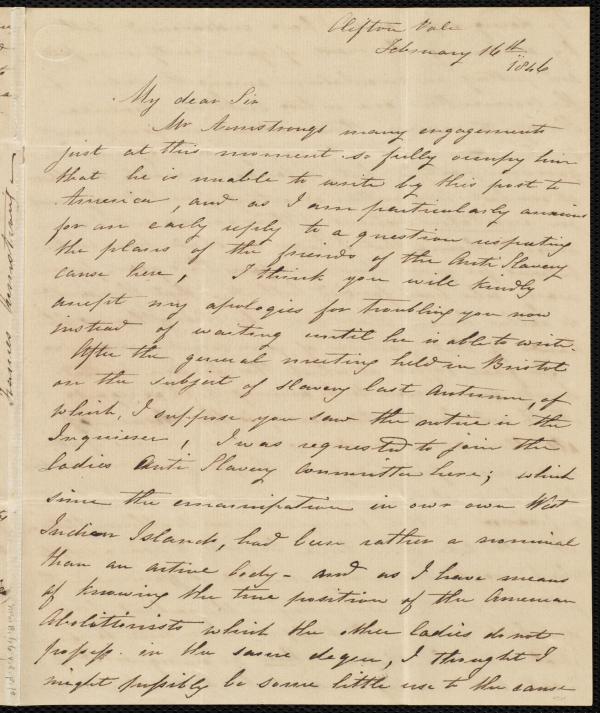 Clifton Vale
February 16th
1846
My dear Sir
Mr Armstrongs many engagements
just at this moment so fully occupy him
that he is unable to write by this post to
America, and as I am particularly anxious
for an early reply to a question respecting
the plans of the friends of the Anti Slavery
cause here, I think you will kindly
accept my apologies for troubling you now
instead of waiting until he is able to write.
After the general meeting held in Bristol
on the subject of slavery last Autumn, of
which, I suppose you saw the notice in the
Inquierer, I was requested to join the
Ladies Anti Slavery Committee here; which
since the emancipation in our own West
Indian Islands, had been rather a nominal
than an active body - and as I have means
of knowing the true position of the American
Abolitionists which the other ladies do not
possess in the same degree, I thought I
might possibly be some little use to the cause
Frances Armstrong